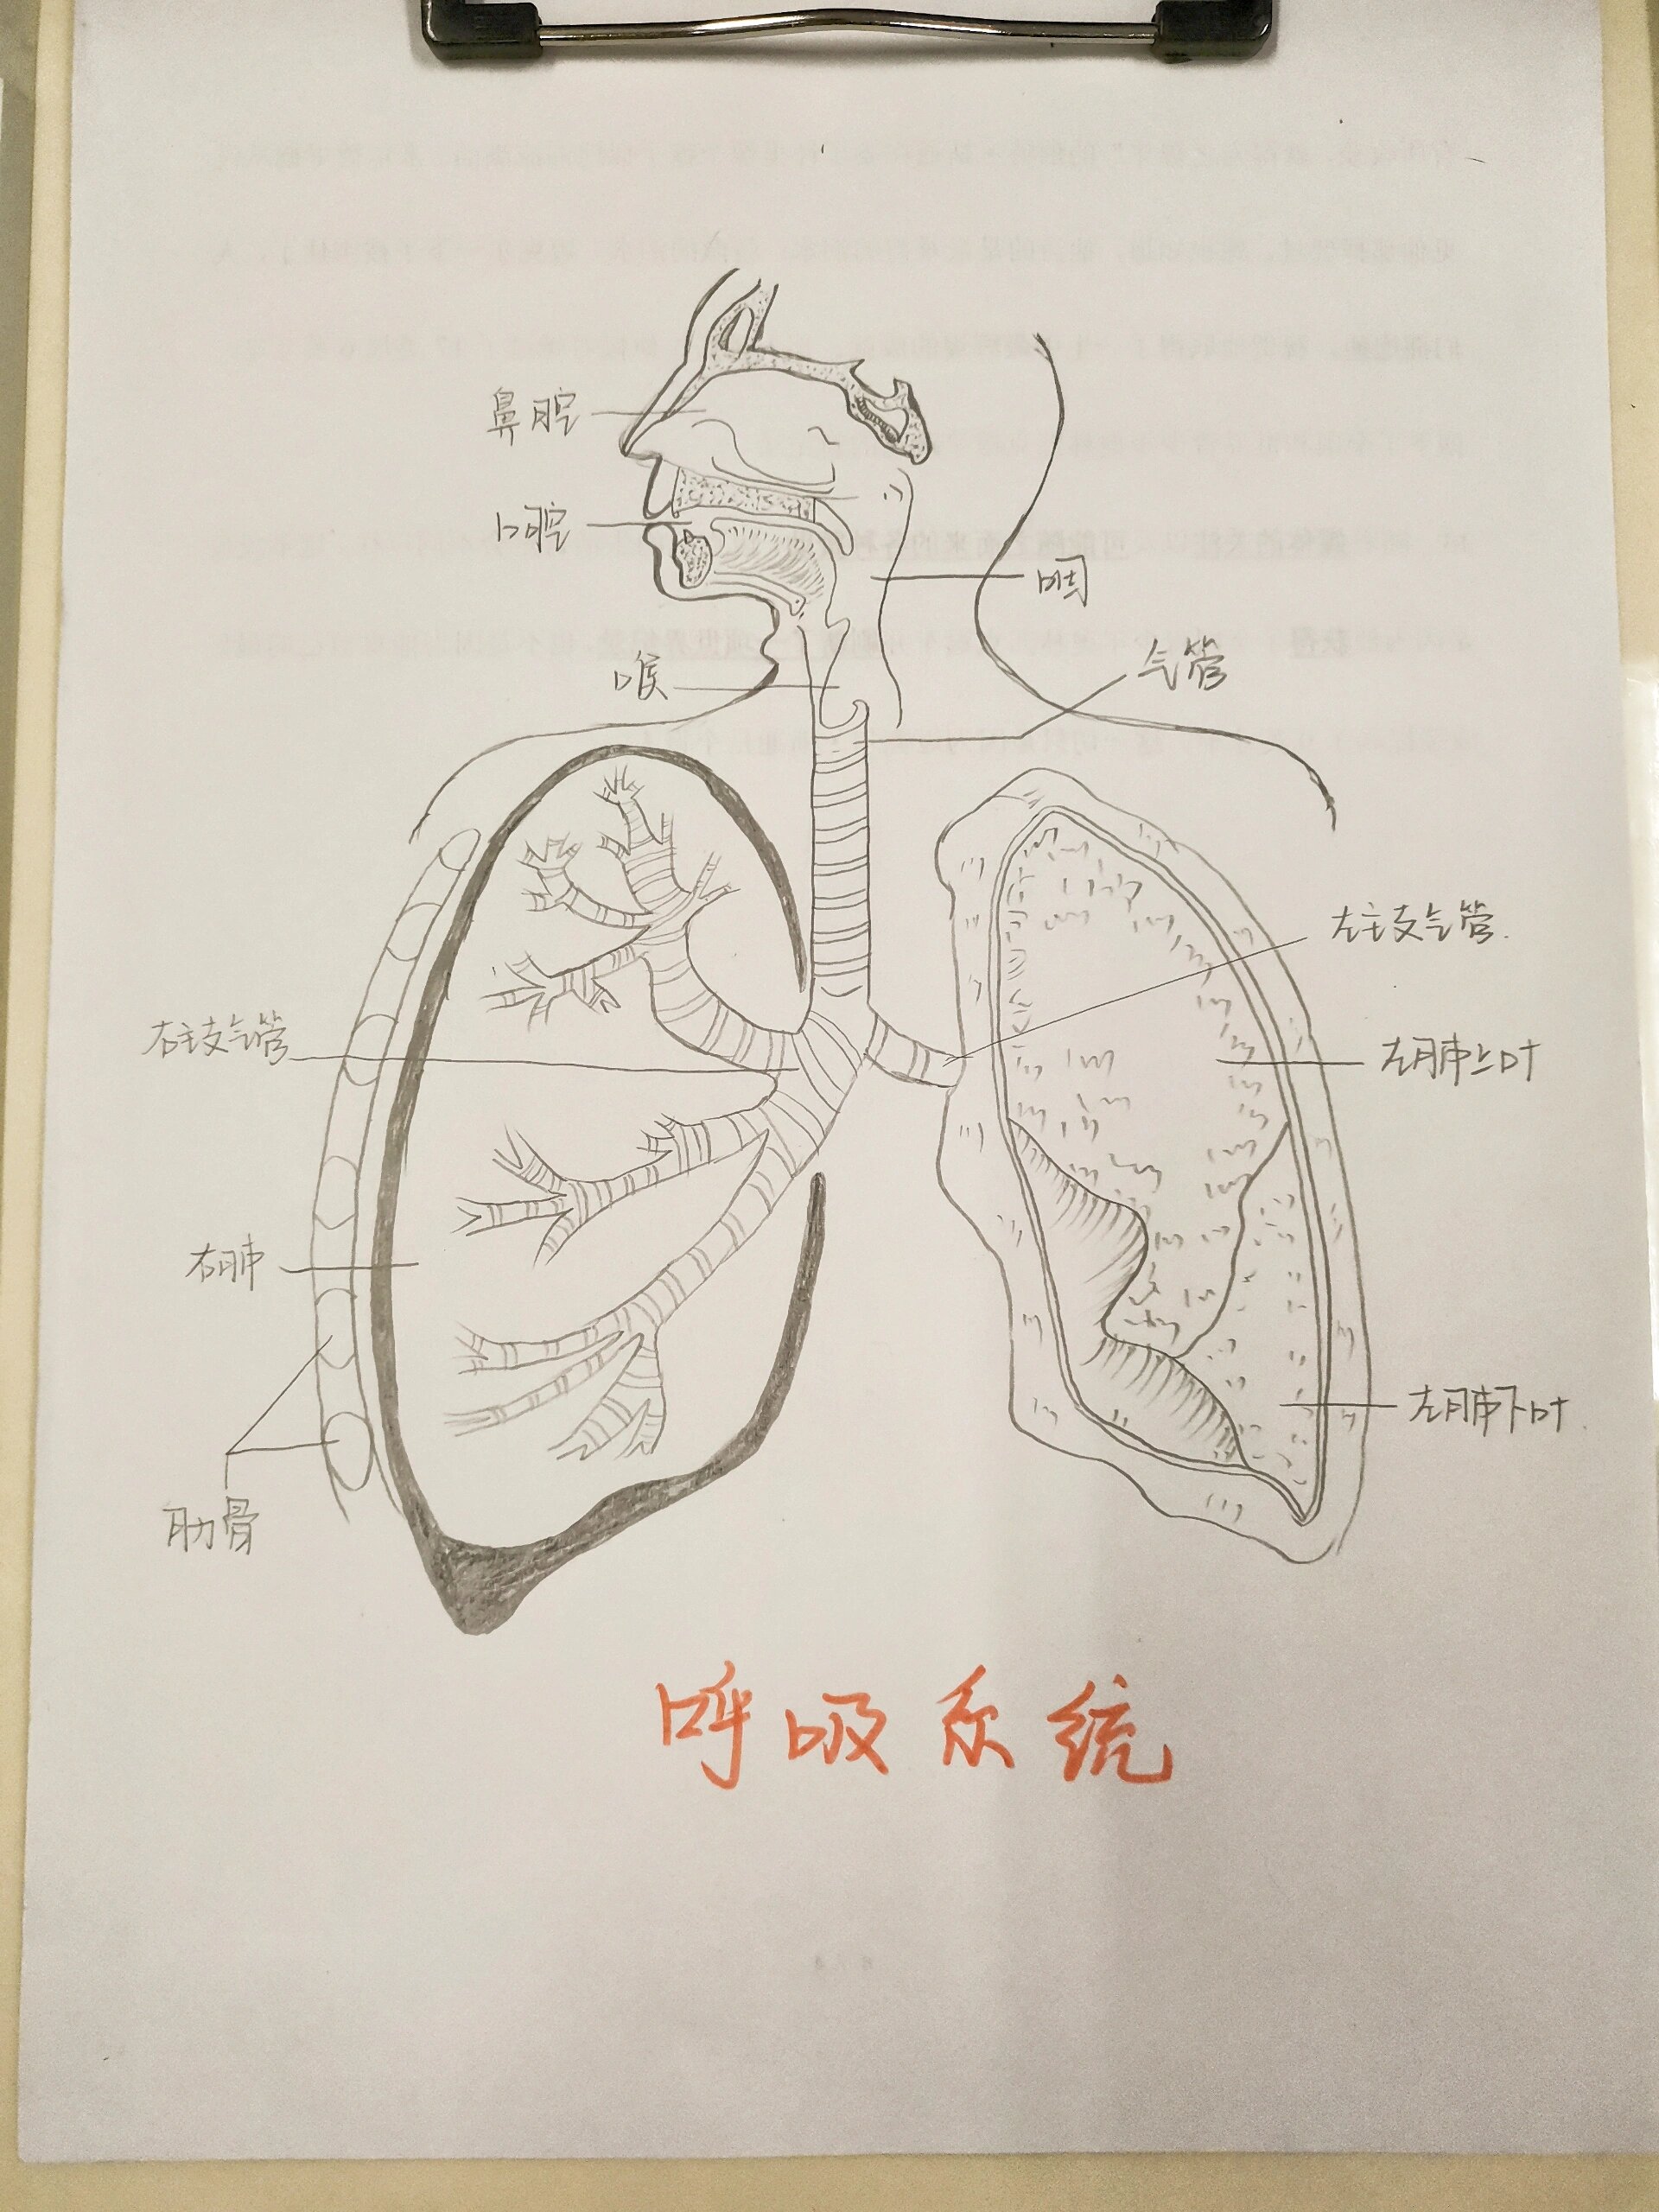 鼻腔
口腔
咽
喉
气管
左主支气管
右主支气管
左肺上叶
右肺
左肺下叶
肋骨
呼吸系统